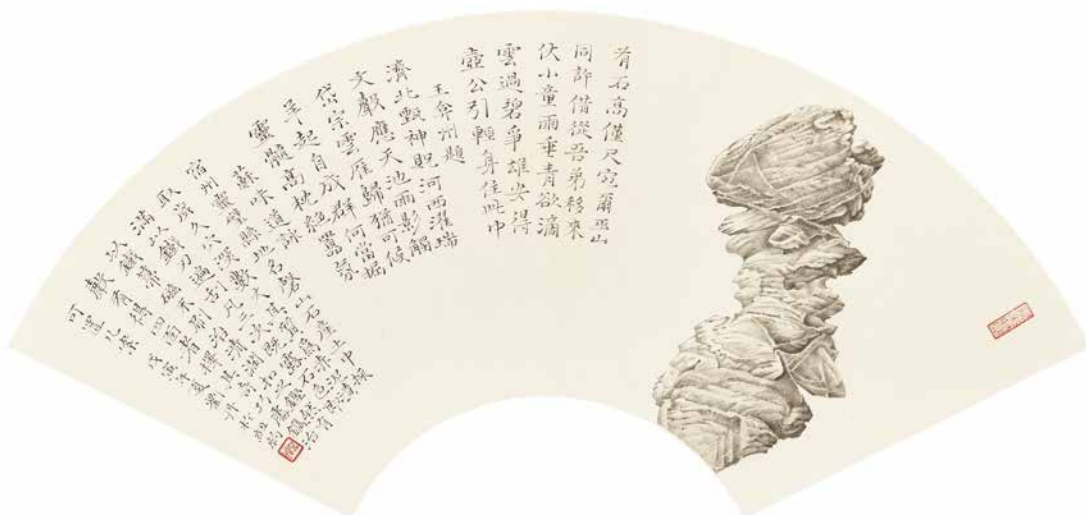 有石高僅尺宛爾巫山
同許借從吾弟移來
伏小童雨垂青欲滴
雲過碧爭雄安得
壺公引輕身住此中
王弇州題
濟北甄神貺河西濯瑞
文聲應天池雨影觸
岱宗雲雁歸猶可候
羊起自成群何當握
靈髓高枕絕囂氛
蘇味道詠
宿州靈璧縣地名磬山石產土中採
取歲久穴深數丈其質為赤泥漬
滿以鐵刀遍刮凡三次既露石
以鐵箒磁末刷治清潤扣之鏗然